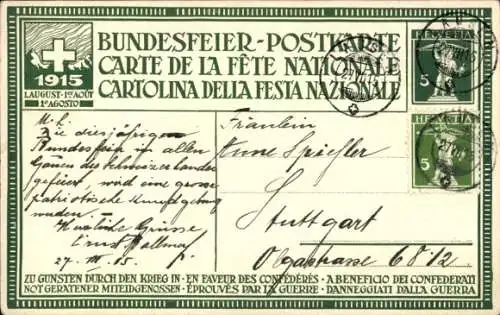 BUNDESFEIER-POSTKARTE
CARTE DE LA FÊTE NATIONALE
CARTOLINA DELLA FESTA NAZIONALE
1915
1.AUGUST-1ER AOÛT
1º AGOSTO
HELVETIA
5
HELVETIA
5
M. L.
Die diesjährige
Bundesfeier in allen
Gauen des Schweizerlandes
gefeiert, wird eine grosse
patriotische Kundgebung
werden.
Herzliche Grüsse
Ernst
27. VII. 15.
Fräulein
Anne
Stuttgart
Olgastrasse 68 12
ZU GUNSTEN DURCH DEN KRIEG IN · EN FAVEUR DES CONFÉDÉRÉS · A BENEFICIO DEI CONFEDERATI
NOT GERATENER MITEIDGENOSSEN · ÉPROUVÉS PAR LA GUERRE · DANNEGGIATI DALLA GUERRA